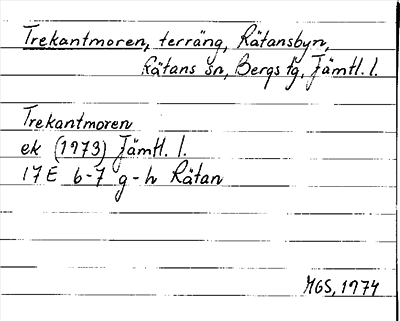 Trekantmoren, terräng, Rätansbyn,
Rätans sn, Bergs tg, Jämtl. l.
Trekantmoren
ek (1973) Jämtl. l.
17E 6-7 g-h Rätan
MGS, 1974